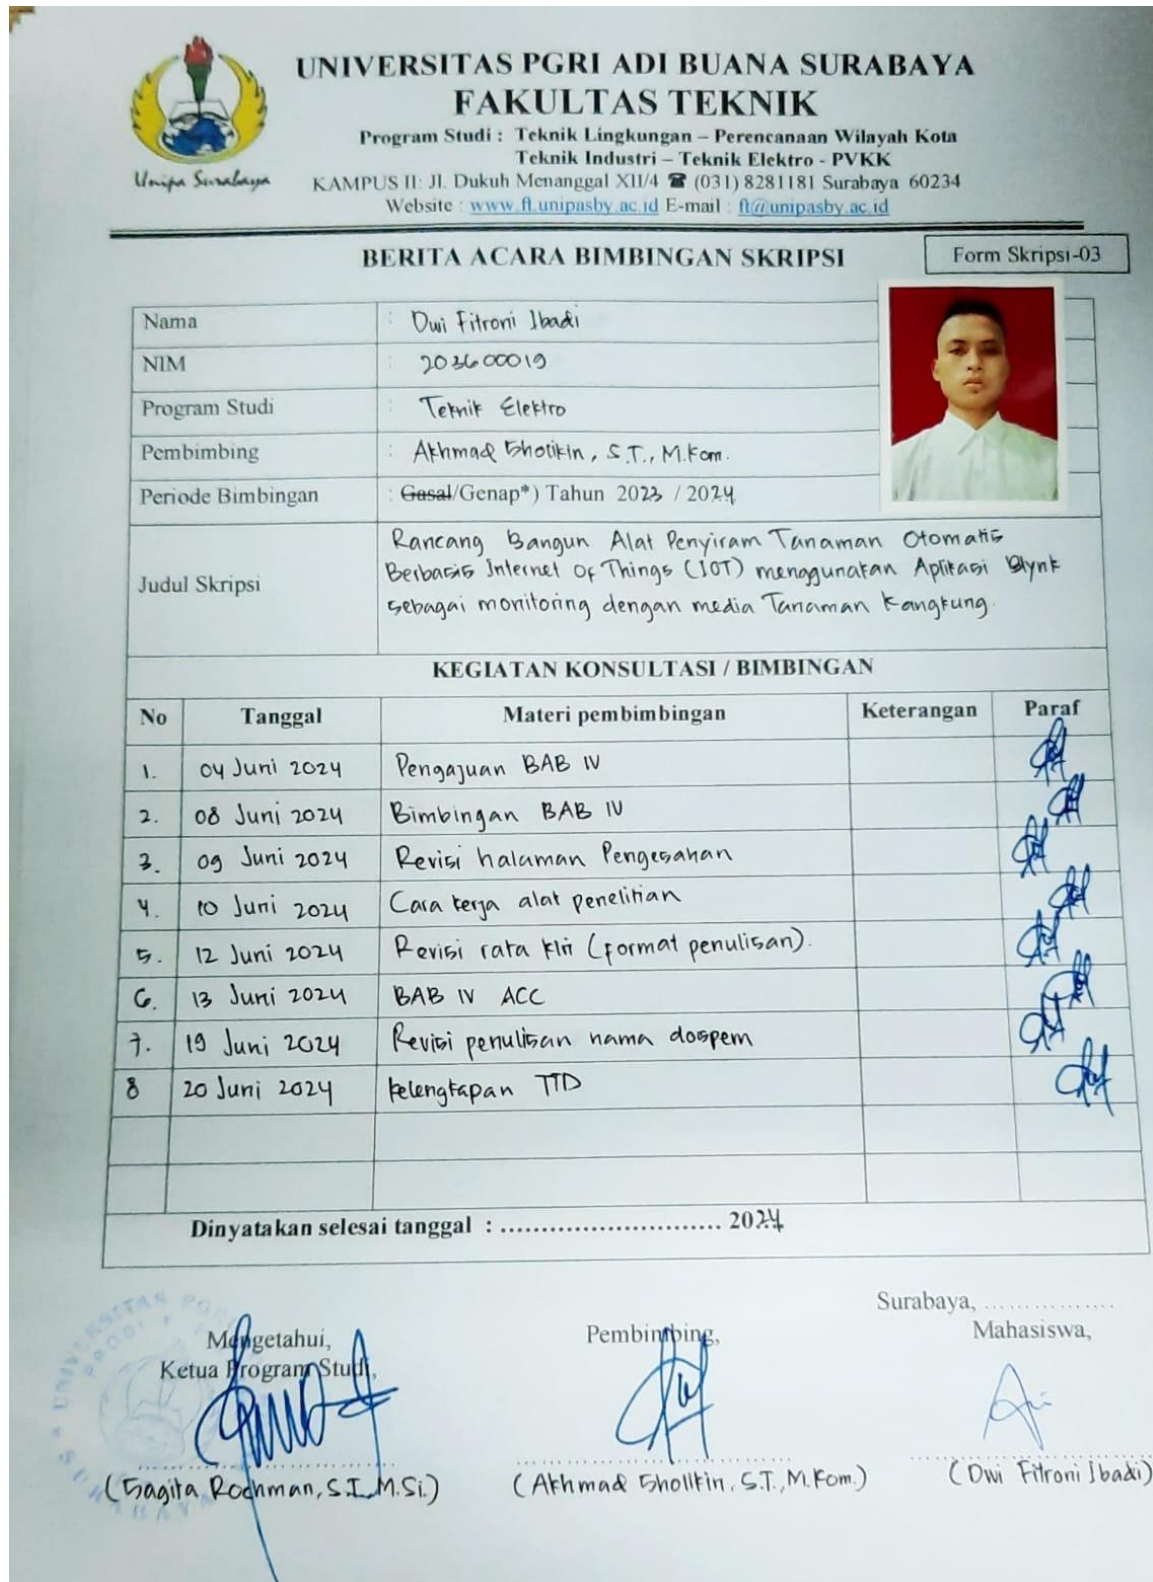 UNIVERSITAS PGRI ADI BUANA SURABAYA
FAKULTAS TEKNIK
Program Studi : Teknik Lingkungan – Perencanaan Wilayah Kota
Teknik Industri – Teknik Elektro - PVKK
KAMPUS II: Jl. Dukuh Menanggal XII/4 ☎ (031) 8281181 Surabaya 60234
Website : www.ft.unipasby.ac.id E-mail : ft@unipasby.ac.id
Unipa Surabaya
BERITA ACARA BIMBINGAN SKRIPSI
Form Skripsi-03
Nama : Dwi Fitroni Ibadi
NIM : 203600019
Program Studi : Teknik Elektro
Pembimbing : Akhmad Sholikin, S.T., M.Kom.
Periode Bimbingan : Gasal/Genap*) Tahun 2023 / 2024
Judul Skripsi
Rancang Bangun Alat Penyiram Tanaman Otomatis
Berbasis Internet Of Things (IOT) menggunakan Aplikasi Blynk
sebagai monitoring dengan media Tanaman Kangkung.
KEGIATAN KONSULTASI / BIMBINGAN
No Tanggal Materi pembimbingan Keterangan Paraf
1. 04 Juni 2024 Pengajuan BAB IV
2. 08 Juni 2024 Bimbingan BAB IV
3. 09 Juni 2024 Revisi halaman Pengesahan
4. 10 Juni 2024 Cara kerja alat penelitian
5. 12 Juni 2024 Revisi rata kiri (format penulisan).
6. 13 Juni 2024 BAB IV ACC
7. 19 Juni 2024 Revisi penulisan nama dospem
8 20 Juni 2024 kelengkapan TTD
Dinyatakan selesai tanggal : .......................... 2024
Surabaya, ................
Mengetahui, Pembimbing, Mahasiswa,
Ketua Program Studi,
(Sagita Rochman, S.T., M.Si.) (Akhmad Sholikin, S.T., M.Kom.) (Dwi Fitroni Ibadi)